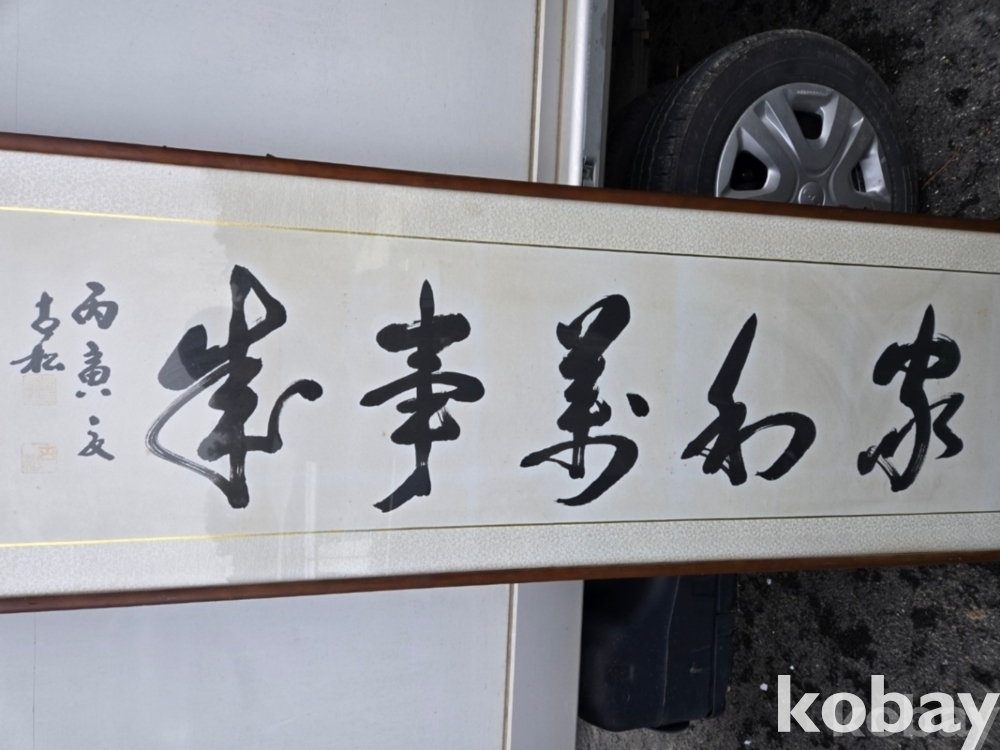 家和萬事成
丙寅夏
古松
kobay